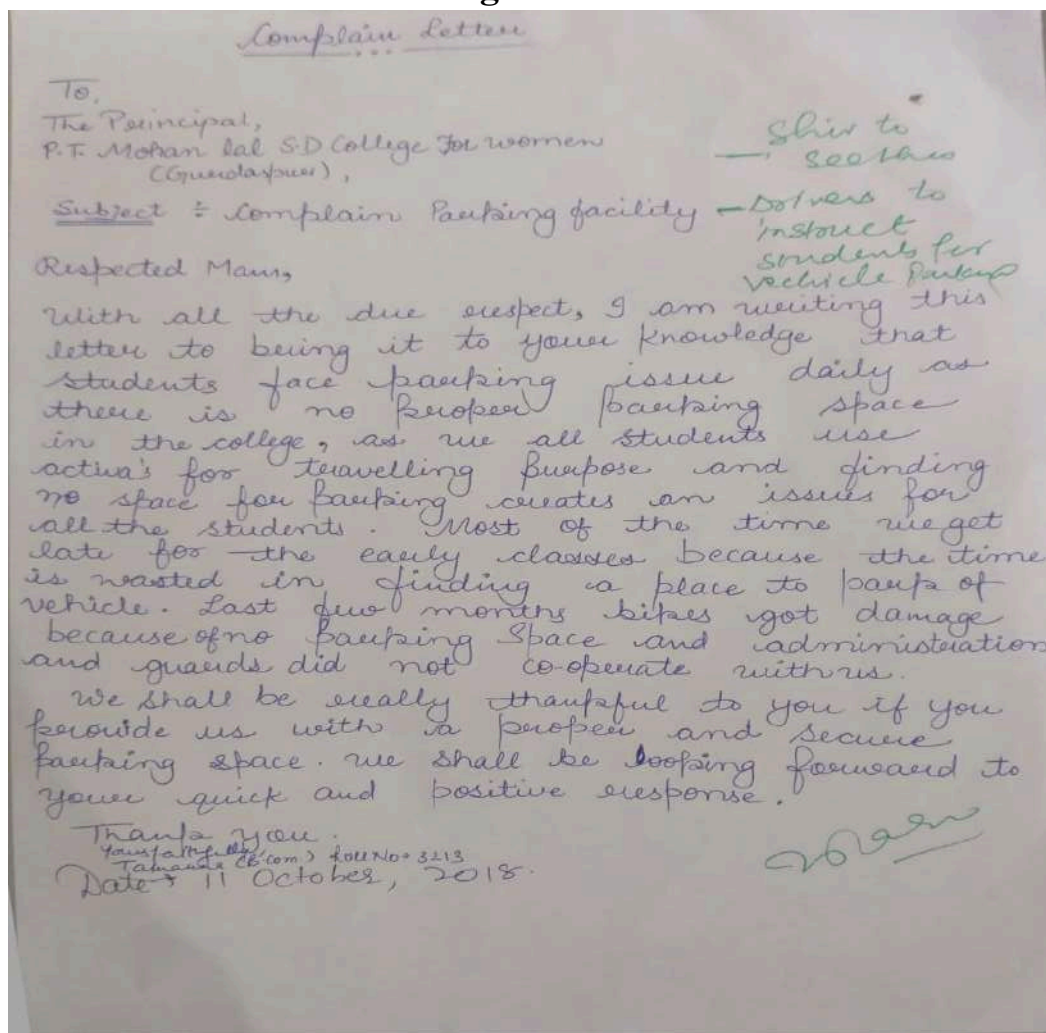 Complain Letter
To,
The Principal,
P.T. Mohan lal S.D College For women
(Gurdaspur),
Subject ÷ Complain Parking facility
Respected Mam,
With all the due respect, I am writing this
letter to being it to your knowledge that
students face parking issue daily as
there is no proper parking space
in the college, as we all students use
activa's for travelling purpose and finding
no space for parking creates an issues for
all the students. Most of the time we get
late for the early classes because the time
is wasted in finding a place to park of
vehicle. Last few months bikes got damage
because of no parking Space and administration
and guards did not co-operate with us.
We shall be really thankful to you if you
provide us with a proper and secure
parking space. we shall be looking forward to
your quick and positive response.
Thank you.
Yours faithfully,
Tamanna (B.com) Roll No. 3213
Date → 11 October, 2018.
to
to
instruct
students for
vechicle Parking